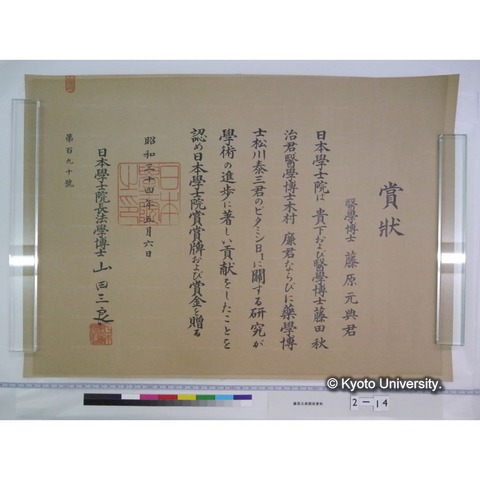 賞状
醫學博士 藤原元典君
日本學士院は貴下および醫學博士藤田秋
治君醫學博士木村 廉君ならびに藥學博
士松川泰三君のビタミンB₁に關する研究が
學術の進歩に著しい貢献をしたことを
認め日本學士院賞賞牌および賞金を贈る
昭和三十四年五月六日
日本學士院長法學博士 山田三良
第百九十號
© Kyoto University.
2-14